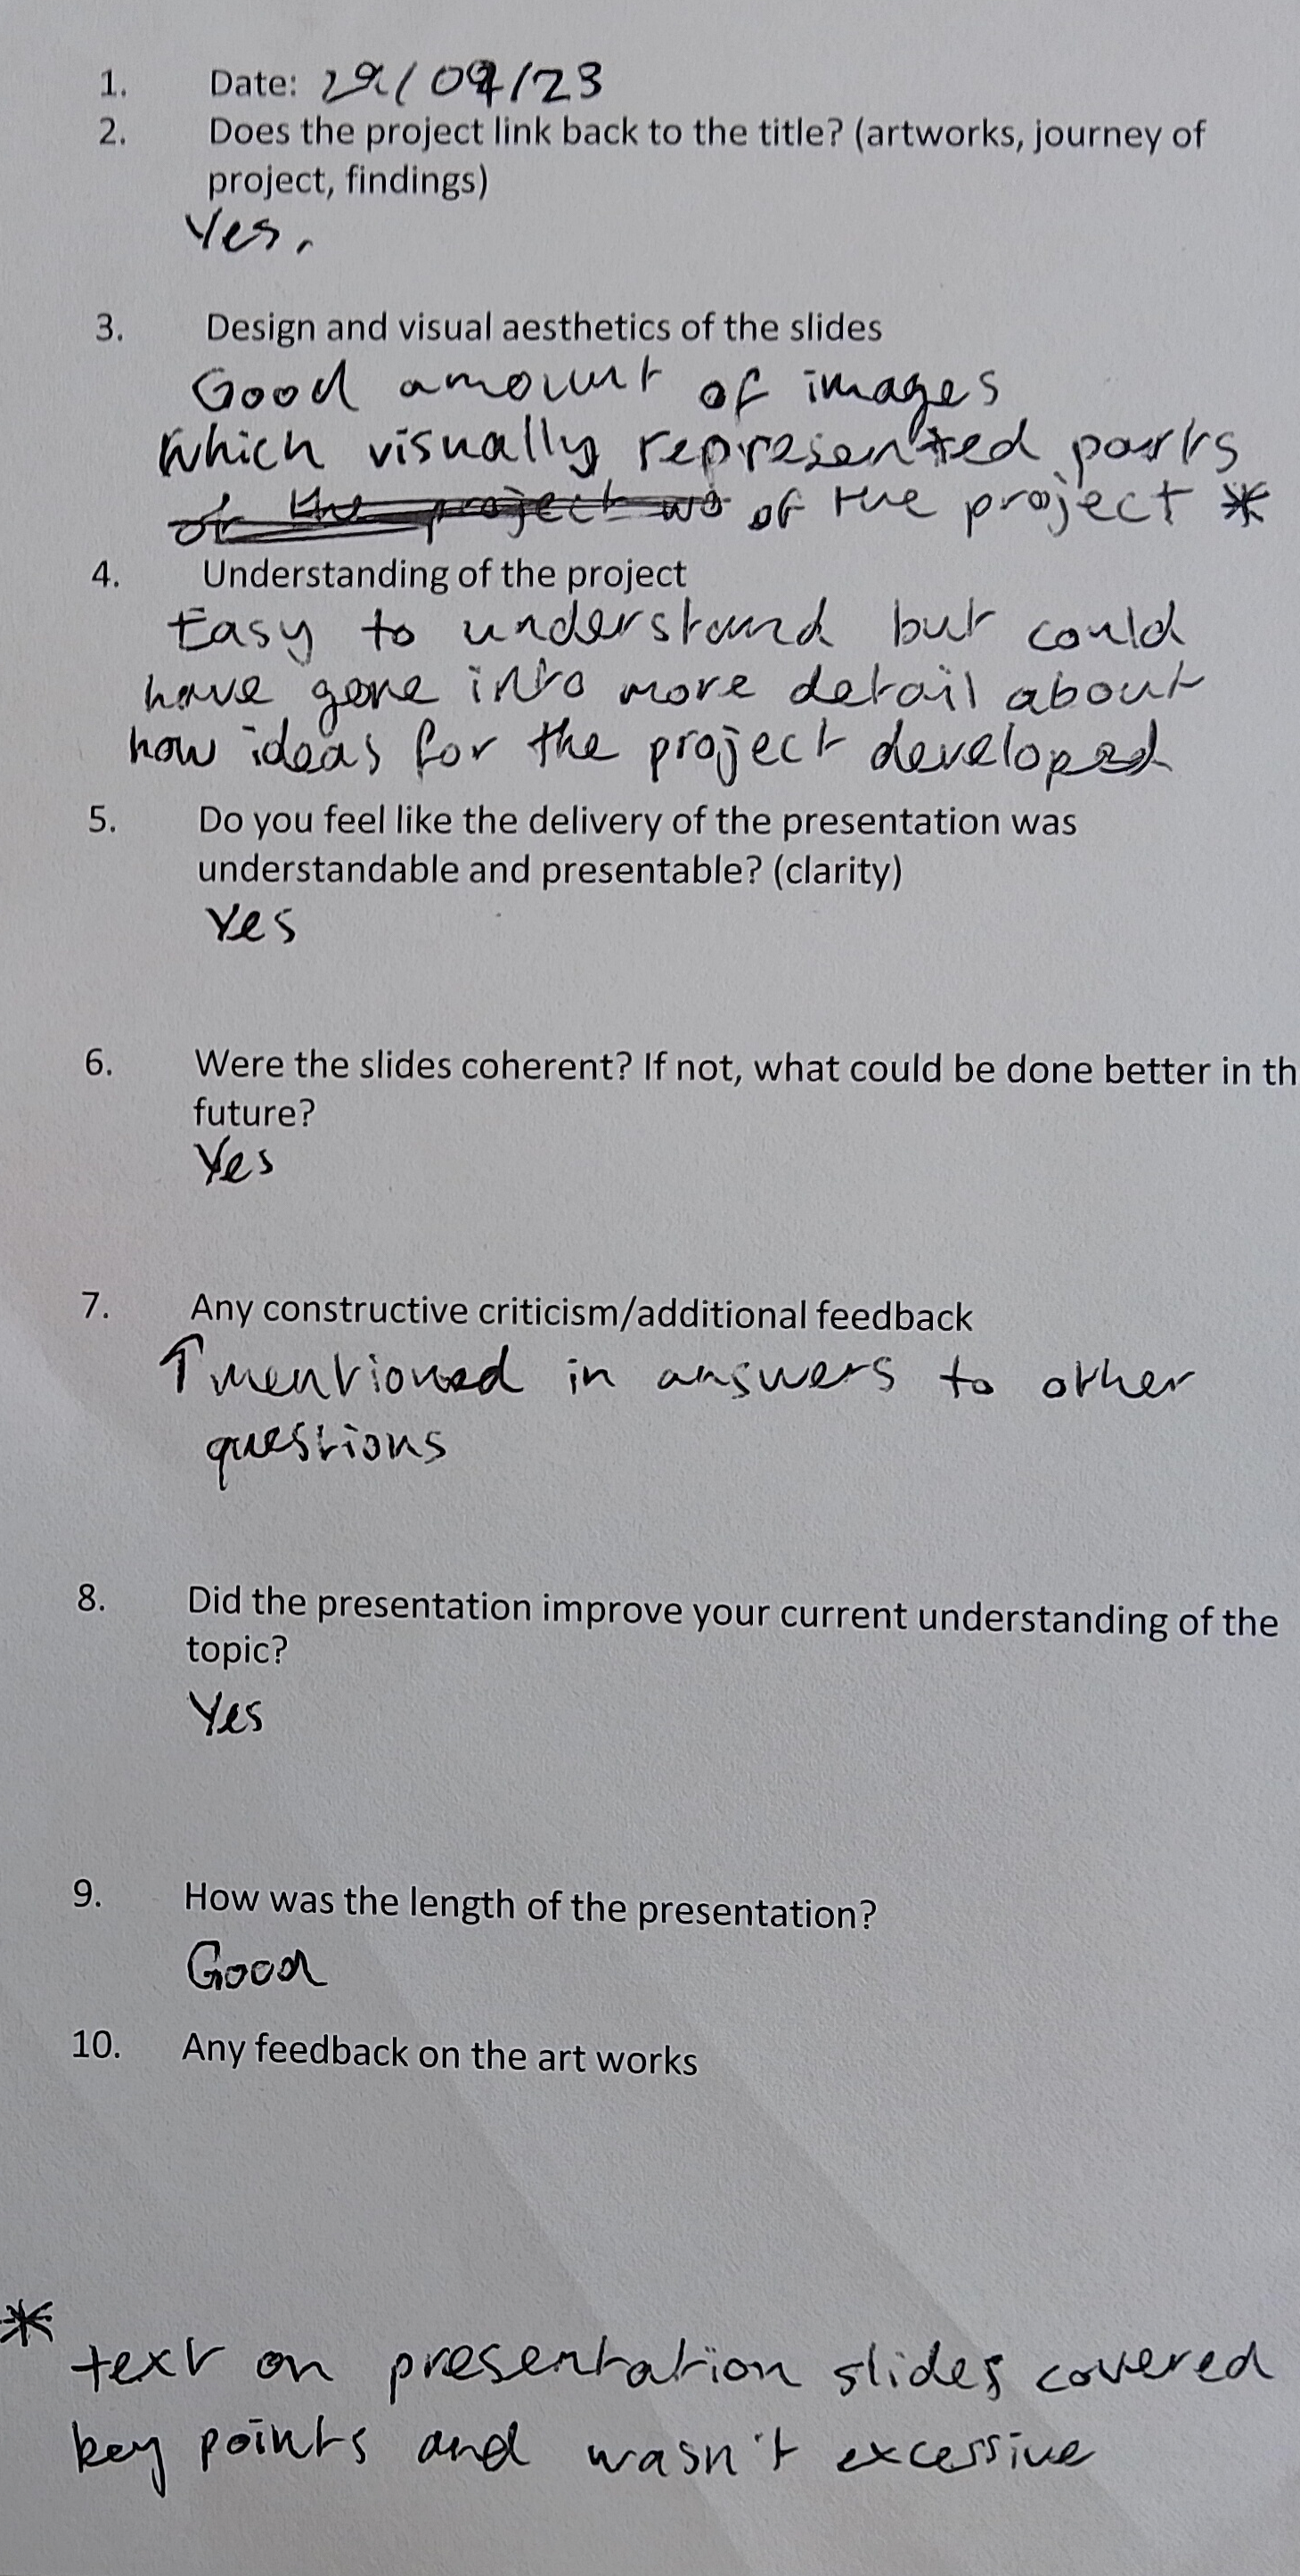 1. Date: 29/09/23
2. Does the project link back to the title? (artworks, journey of
project, findings)
Yes.
3. Design and visual aesthetics of the slides
Good amount of images
which visually represented parts
of the project *
4. Understanding of the project
Easy to understand but could
have gone into more detail about
how ideas for the project developed
5. Do you feel like the delivery of the presentation was
understandable and presentable? (clarity)
Yes
6. Were the slides coherent? If not, what could be done better in th
future?
Yes
7. Any constructive criticism/additional feedback
↑ mentioned in answers to other
questions
8. Did the presentation improve your current understanding of the
topic?
Yes
9. How was the length of the presentation?
Good
10. Any feedback on the art works
*
text on presentation slides covered
key points and wasn't excessive